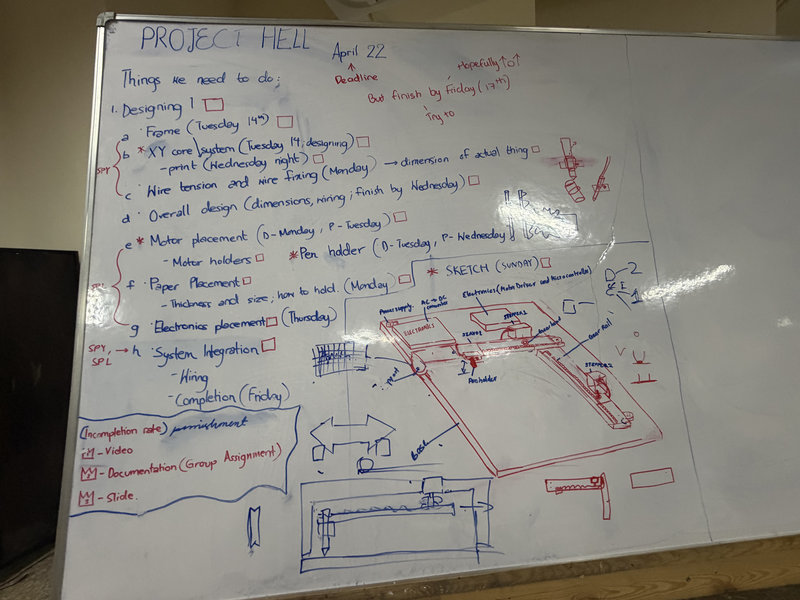 PROJECT HELL
April 22
Deadline
Hopefully
But finish by Friday (17th)
Try to
Things we need to do:
1. Designing !
a. Frame (Tuesday 14th)
b * XY core system (Tuesday 14, designing)
- print (Wednesday night)
SPY
c Wire tension and wire fixing (Monday) → dimension of actual thing
d Overall design (dimensions, wiring; finish by Wednesday)
e * Motor placement (D-Monday, P-Tuesday)
- Motor holders
* Pen holder (D-Tuesday, P-Wednesday
SPL
f Paper Placement
- Thickness and size, how to hold (Monday)
g Electronics placement (Thursday)
SPY, SPL → h System Integration
- Wiring
- Completion (Friday)
(Incompletion rate) punishment
- Video
- Documentation (Group Assignment)
- Slide.
* SKETCH (SUNDAY)
Power supply
AC → DC
Electronics (Motor Driver and Microcontroller)
ELECTRONICS
STEPPER 2
Penholder
Base
D 2
1